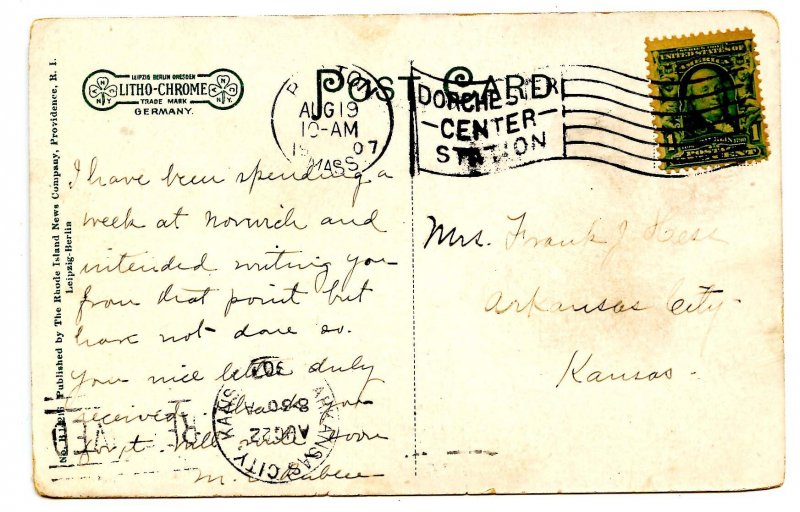 POST CARD
LEIPZIG BERLIN DRESDEN
LITHO-CHROME
TRADE MARK
GERMANY.
BOSTON
AUG 19
10-AM
07
MASS.
DORCHESTER
CENTER
STATION
SERIES 1902
UNITED STATES OF
AMERICA
1
No. Published by The Rhode Island News Company, Providence, R. I.
Leipzig-Berlin
I have been spending a
week at Norwich and
intended writing you
from that point but
have not done so.
You nice letter duly
received. Thank you
will write soon
M.
Mrs. Frank J Hess
Arkansas City
Kansas.
ARKANSAS CITY KANS.
AUG 22
8 30 A
RECEIVED